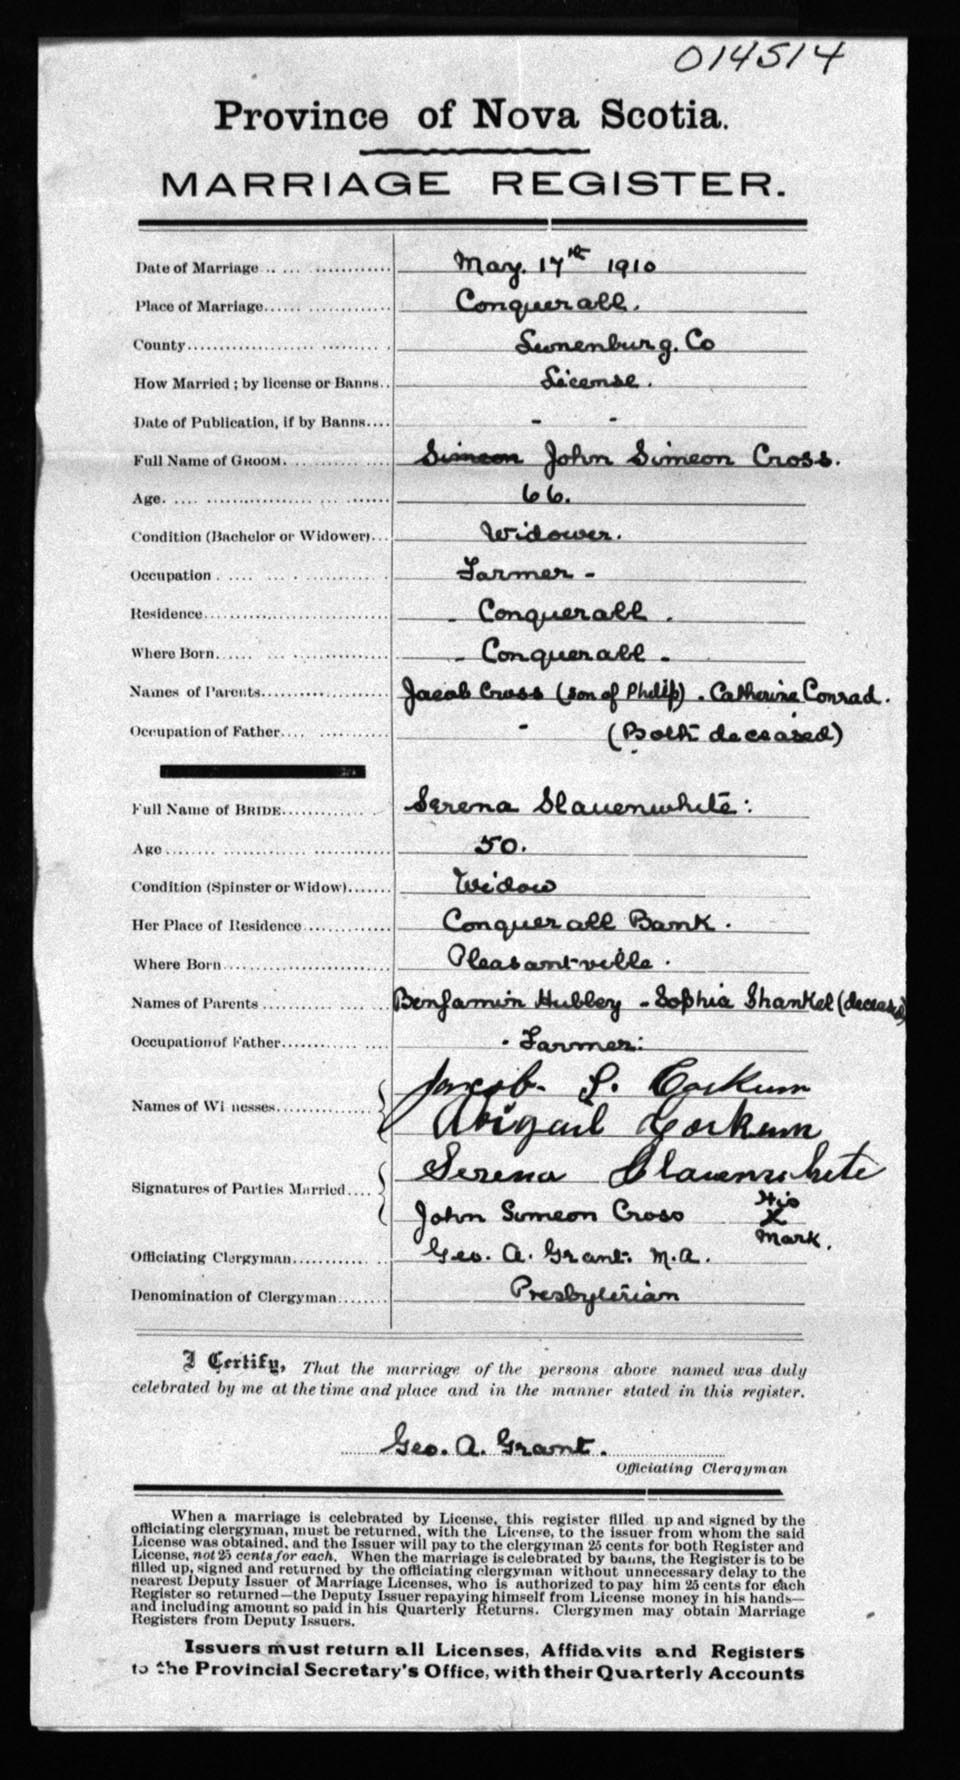 014514
Province of Nova Scotia.
MARRIAGE REGISTER.
Date of Marriage May. 17th 1910
Place of Marriage Conquerall.
County Lunenburg. Co
How Married; by license or Banns.. License.
Date of Publication, if by Banns.... - -
Full Name of GROOM. Simeon John Simeon Cross.
Age. 66.
Condition (Bachelor or Widower)... Widower.
Occupation Farmer -
Residence - Conquerall .
Where Born - Conquerall -
Names of Parents Jacob Cross (son of Philip) . Catherine Conrad.
Occupation of Father - (Both deceased)
Full Name of BRIDE Serena Slauenwhite:
Age 50.
Condition (Spinster or Widow) Widow
Her Place of Residence Conquerall Bank.
Where Born Pleasantville.
Names of Parents Benjamin Hubley - Sophia Shankel (deceased)
Occupation of Father - Farmer:
Jacob L. Corkum
Names of Witnesses
Abigail Corkum
Serena Slauenwhite
Signatures of Parties Married
John Simeon Cross His X Mark.
Officiating Clergyman Geo. A. Grant. M.A.
Denomination of Clergyman Presbyterian
I Certify, That the marriage of the persons above named was duly
celebrated by me at the time and place and in the manner stated in this register.
Geo. A. Grant.
Officiating Clergyman
When a marriage is celebrated by License, this register filled up and signed by the
officiating clergyman, must be returned, with the License, to the issuer from whom the said
License was obtained, and the Issuer will pay to the clergyman 25 cents for both Register and
License, not 25 cents for each. When the marriage is celebrated by banns, the Register is to be
filled up, signed and returned by the officiating clergyman without unnecessary delay to the
nearest Deputy Issuer of Marriage Licenses, who is authorized to pay him 25 cents for each
Register so returned—the Deputy Issuer repaying himself from License money in his hands—
and including amount so paid in his Quarterly Returns. Clergymen may obtain Marriage
Registers from Deputy Issuers.
Issuers must return all Licenses, Affidavits and Registers
to the Provincial Secretary's Office, with their Quarterly Accounts